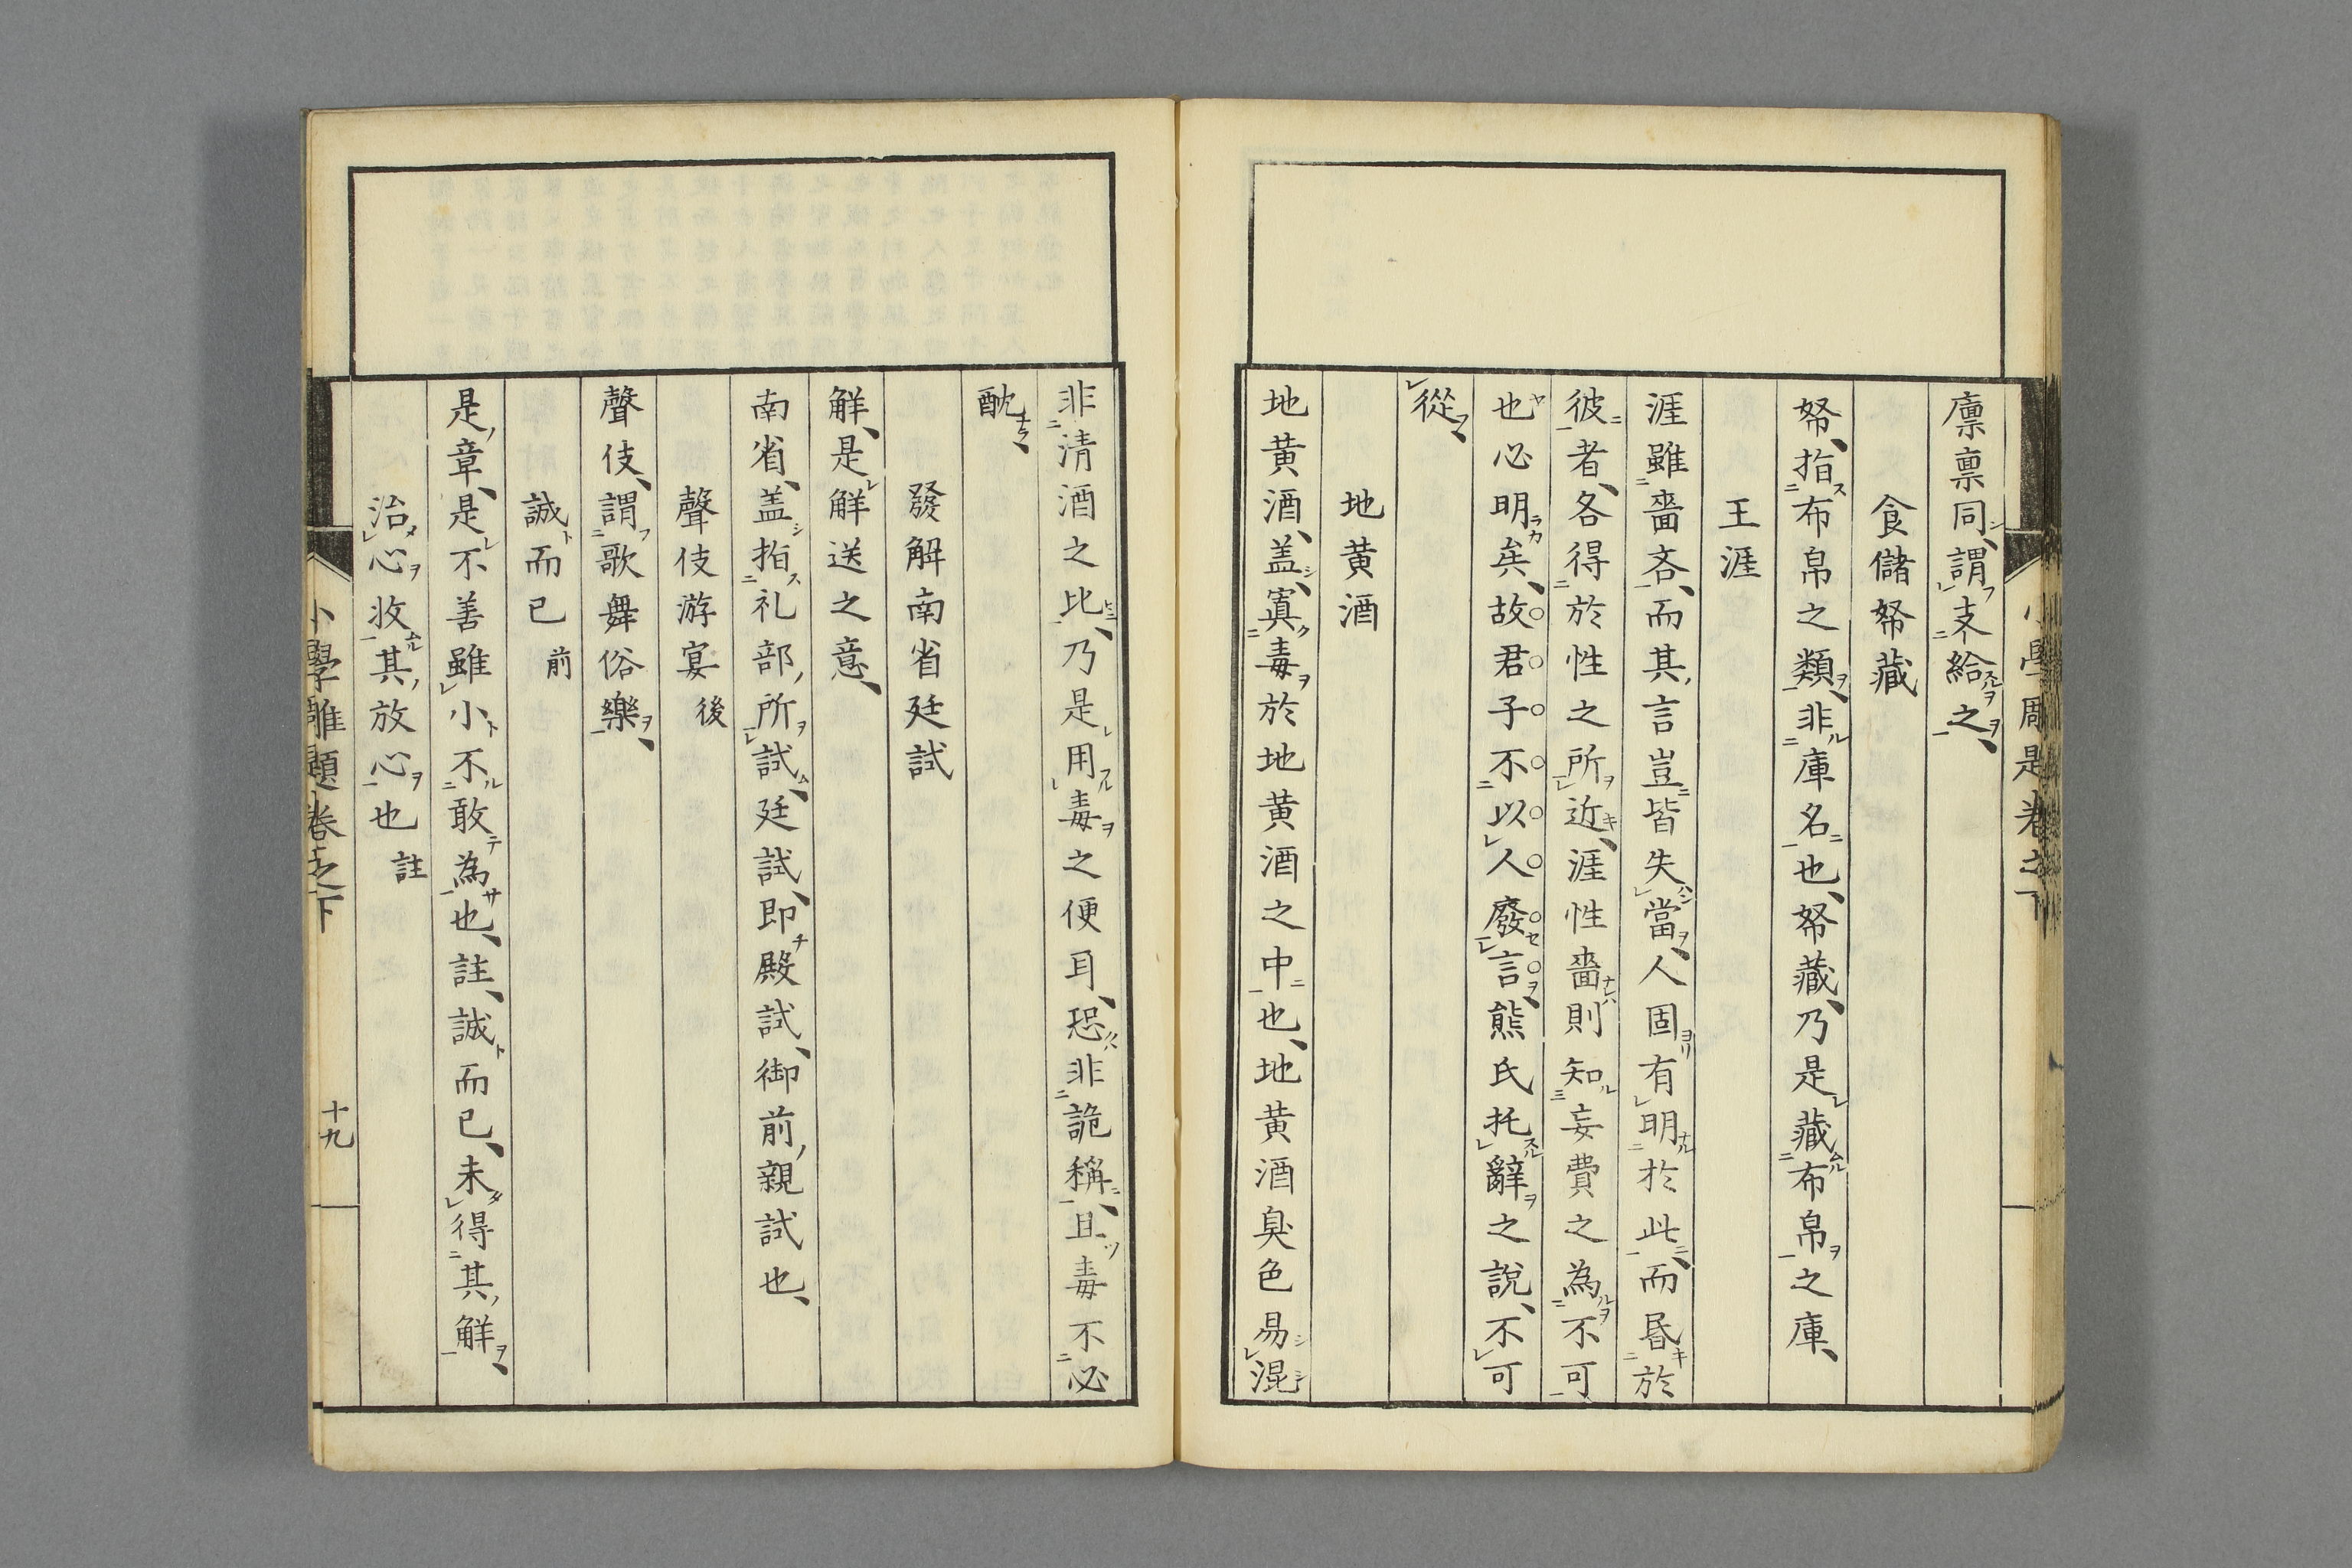 廩禀同謂支給之
食儲帑藏
帑指布帛之類非庫名也帑藏乃是藏布帛之庫
王涯
涯雖嗇吝而其言豈皆失當人固有明於此而昏於
彼者各得於性之所近涯性嗇則知妄費之為不可
也必明矣故君子不以人廢言熊氏托辭之說不可
從
地黄酒
地黄酒盖寘毒於地黄酒之中也地黄酒臭色易混
非清酒之比乃是用毒之便耳恐非詭稱且毒不必
酖
發解南省廷試
觧是觧送之意
南省盖指礼部所試廷試即殿試御前親試也
聲伎游宴 後
聲伎謂歌舞俗樂
誠而已 前
是章是不善雖小不敢為也註誠而已未得其觧
治心收其放心也 註
小學雕題卷之下
十九